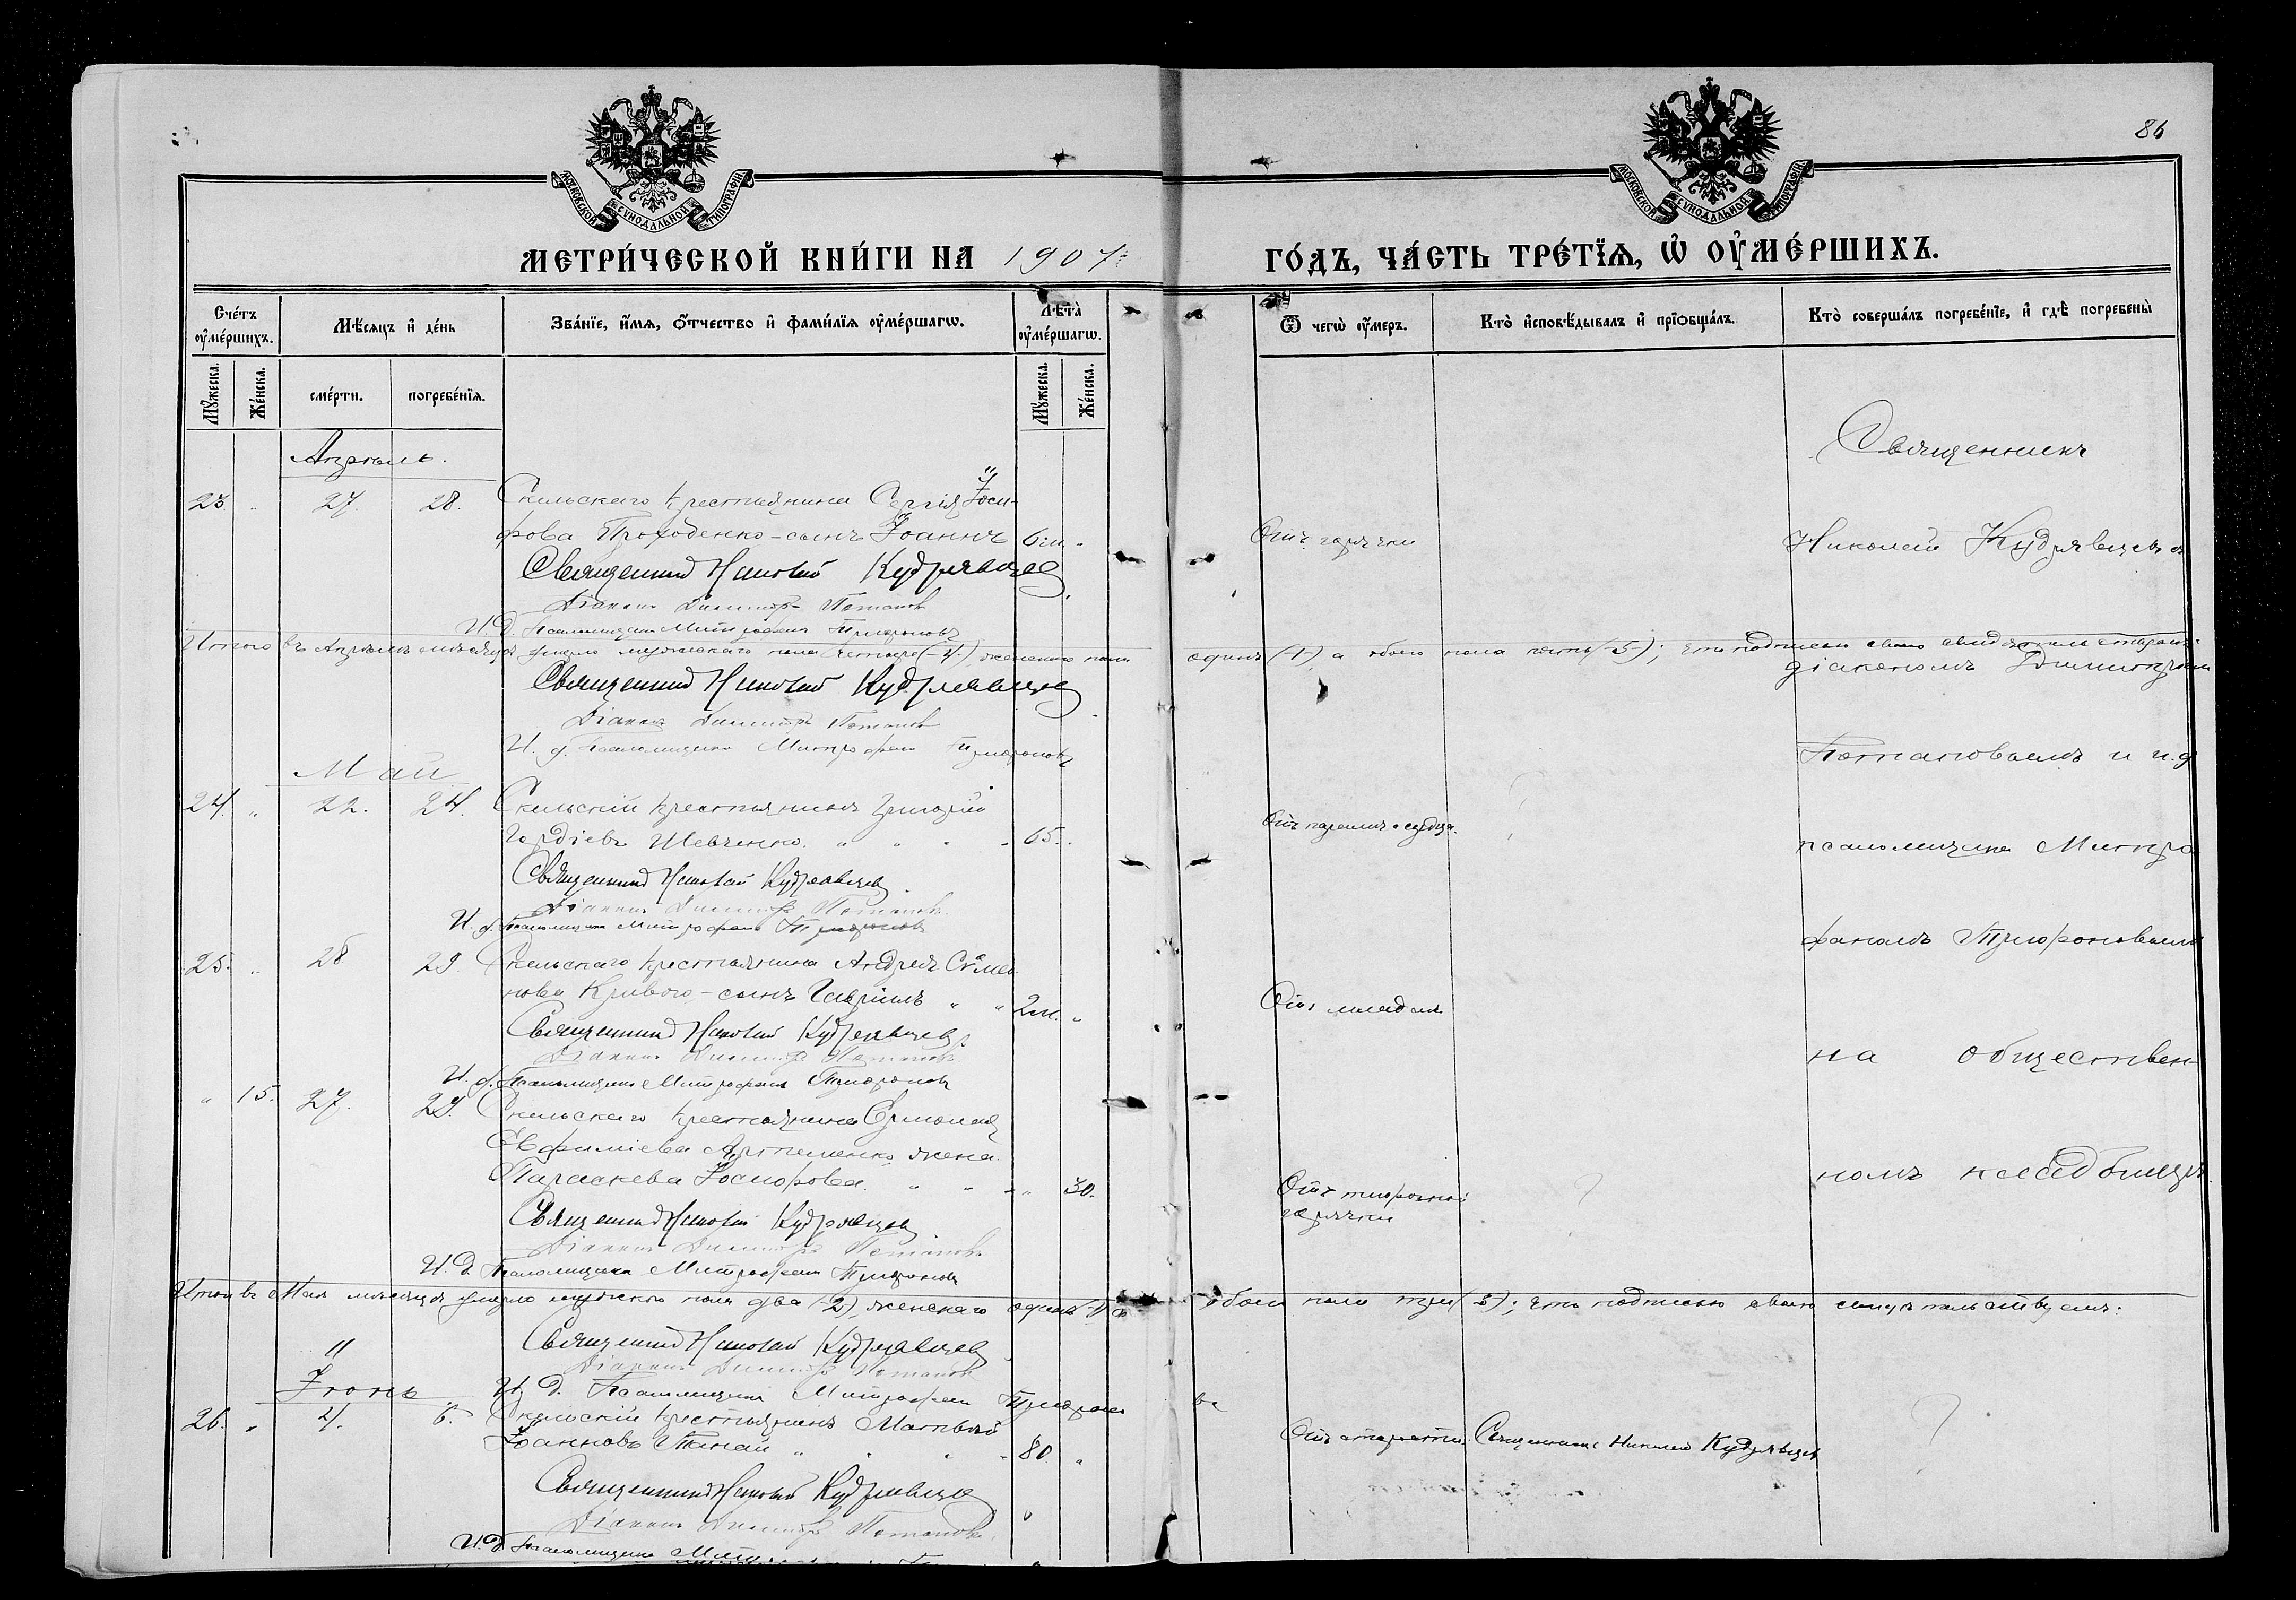 86
МОСКОВСКОЙ СѴНОДАЛЬНОЙ ТИПОГРАФІИ
МОСКОВСКОЙ СѴНОДАЛЬНОЙ ТИПОГРАФІИ
МЕТРИ́ЧЕСКОЙ КНИ́ГИ НА 1907
ГО́ДЪ, ЧА́СТЬ ТРЕ́ТЇѦ, Ѡ҆ ОУ҆МЕ́РШИХЪ.
Сче́тъ оу҆ме́ршихъ.
Мѣ́сяцъ и҆ де́нь
Зва́нїе, и҆́мѧ, ѻ҆́тчество и҆ фами́лїѧ оу҆ме́ршагѡ.
Лѣ́та оу҆ме́ршагѡ.
Ѿ чегѡ̀ оу҆́меръ.
Кто̀ и҆сповѣ́дывалъ и҆ прїѡбща́лъ.
Кто̀ соверша́лъ погребе́нїе, и҆ гдѣ̀ погребены̀
Му́жеска.
Же́нска.
сме́рти.
погребе́нїѧ.
Му́жеска.
Же́нска.
Апрѣль.
Священникъ
23. " 27. 28. Скельскаго крестьянина Сергія Іоси-
фова Проходенко - сынъ Іоаннъ 6 м. " Отъ горячки Николай Кудрявцевъ съ
Священникъ Николай Кудрявцевъ
Діаконъ Димитрій Потаповъ
И. д. Псаломщика Митрофанъ
Итого въ Апрѣлѣ мѣсяцѣ умерло мужескаго пола четыре (-4-), женскаго пола одинъ (-1-) а обоего пола пять (-5-); что подписью своею
діакономъ Димитріемъ
Священникъ Николай Кудрявцевъ
Діаконъ Димитрій Потаповъ
И. д. Псаломщика Митрофанъ
Потаповымъ и и. д.
Май
24. " 22. 24. Скельскій крестьянинъ Григорій
Гордіевъ Шевченко. " " " 65. Отъ паралича сердца. псаломщика Митро
Священникъ Николай Кудрявцевъ
Діаконъ Димитрій Потаповъ
И. д. Псаломщика Митрофанъ
фаномъ
25. " 28 29. Скельскаго крестьянина Андрея Симео
нова Кривого - сынъ Гавріилъ " " 2 м. " Отъ младен.
Священникъ Николай Кудрявцевъ
Діаконъ Димитрій Потаповъ
на общественъ
И. д. Псаломщика Митрофанъ
" 15. 27. 29. Скельскаго крестьянина Ермолая
Евфиміева Артеменко жена
Параскева Іосифова. " " " 30. Отъ тифозной
горячки
номъ кладбищѣ.
Священникъ Николай Кудрявцевъ
Діаконъ Димитрій Потаповъ
И. д. Псаломщика Митрофанъ
Итого въ Маѣ мѣсяцѣ умерло мужского пола два (-2), женскаго одинъ -1- а обоего пола три (-3-); что подписью своею свидѣтельствуемъ:
Священникъ Николай Кудрявцевъ
Діаконъ Димитрій Потаповъ
Іюнь
И. д. Псаломщика Митрофанъ
26. " 4. 6. Скельскій крестьянинъ Матвѣй
Іоанновъ " " " 80 " Отъ старости. Священникъ Николай Кудрявцевъ
Священникъ Николай Кудрявцевъ
Діаконъ Димитрій Потаповъ
И. д. Псаломщика